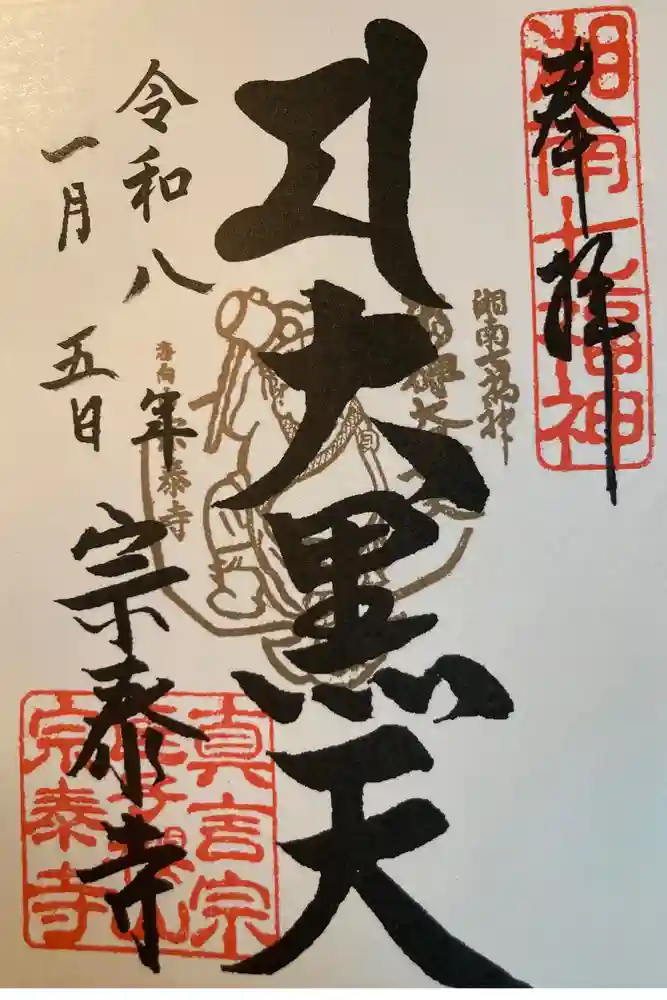 奉拝
湘南七福神
湘南七福神
大黒天
令和八年
一月五日
宗泰寺
真言宗
宗泰寺